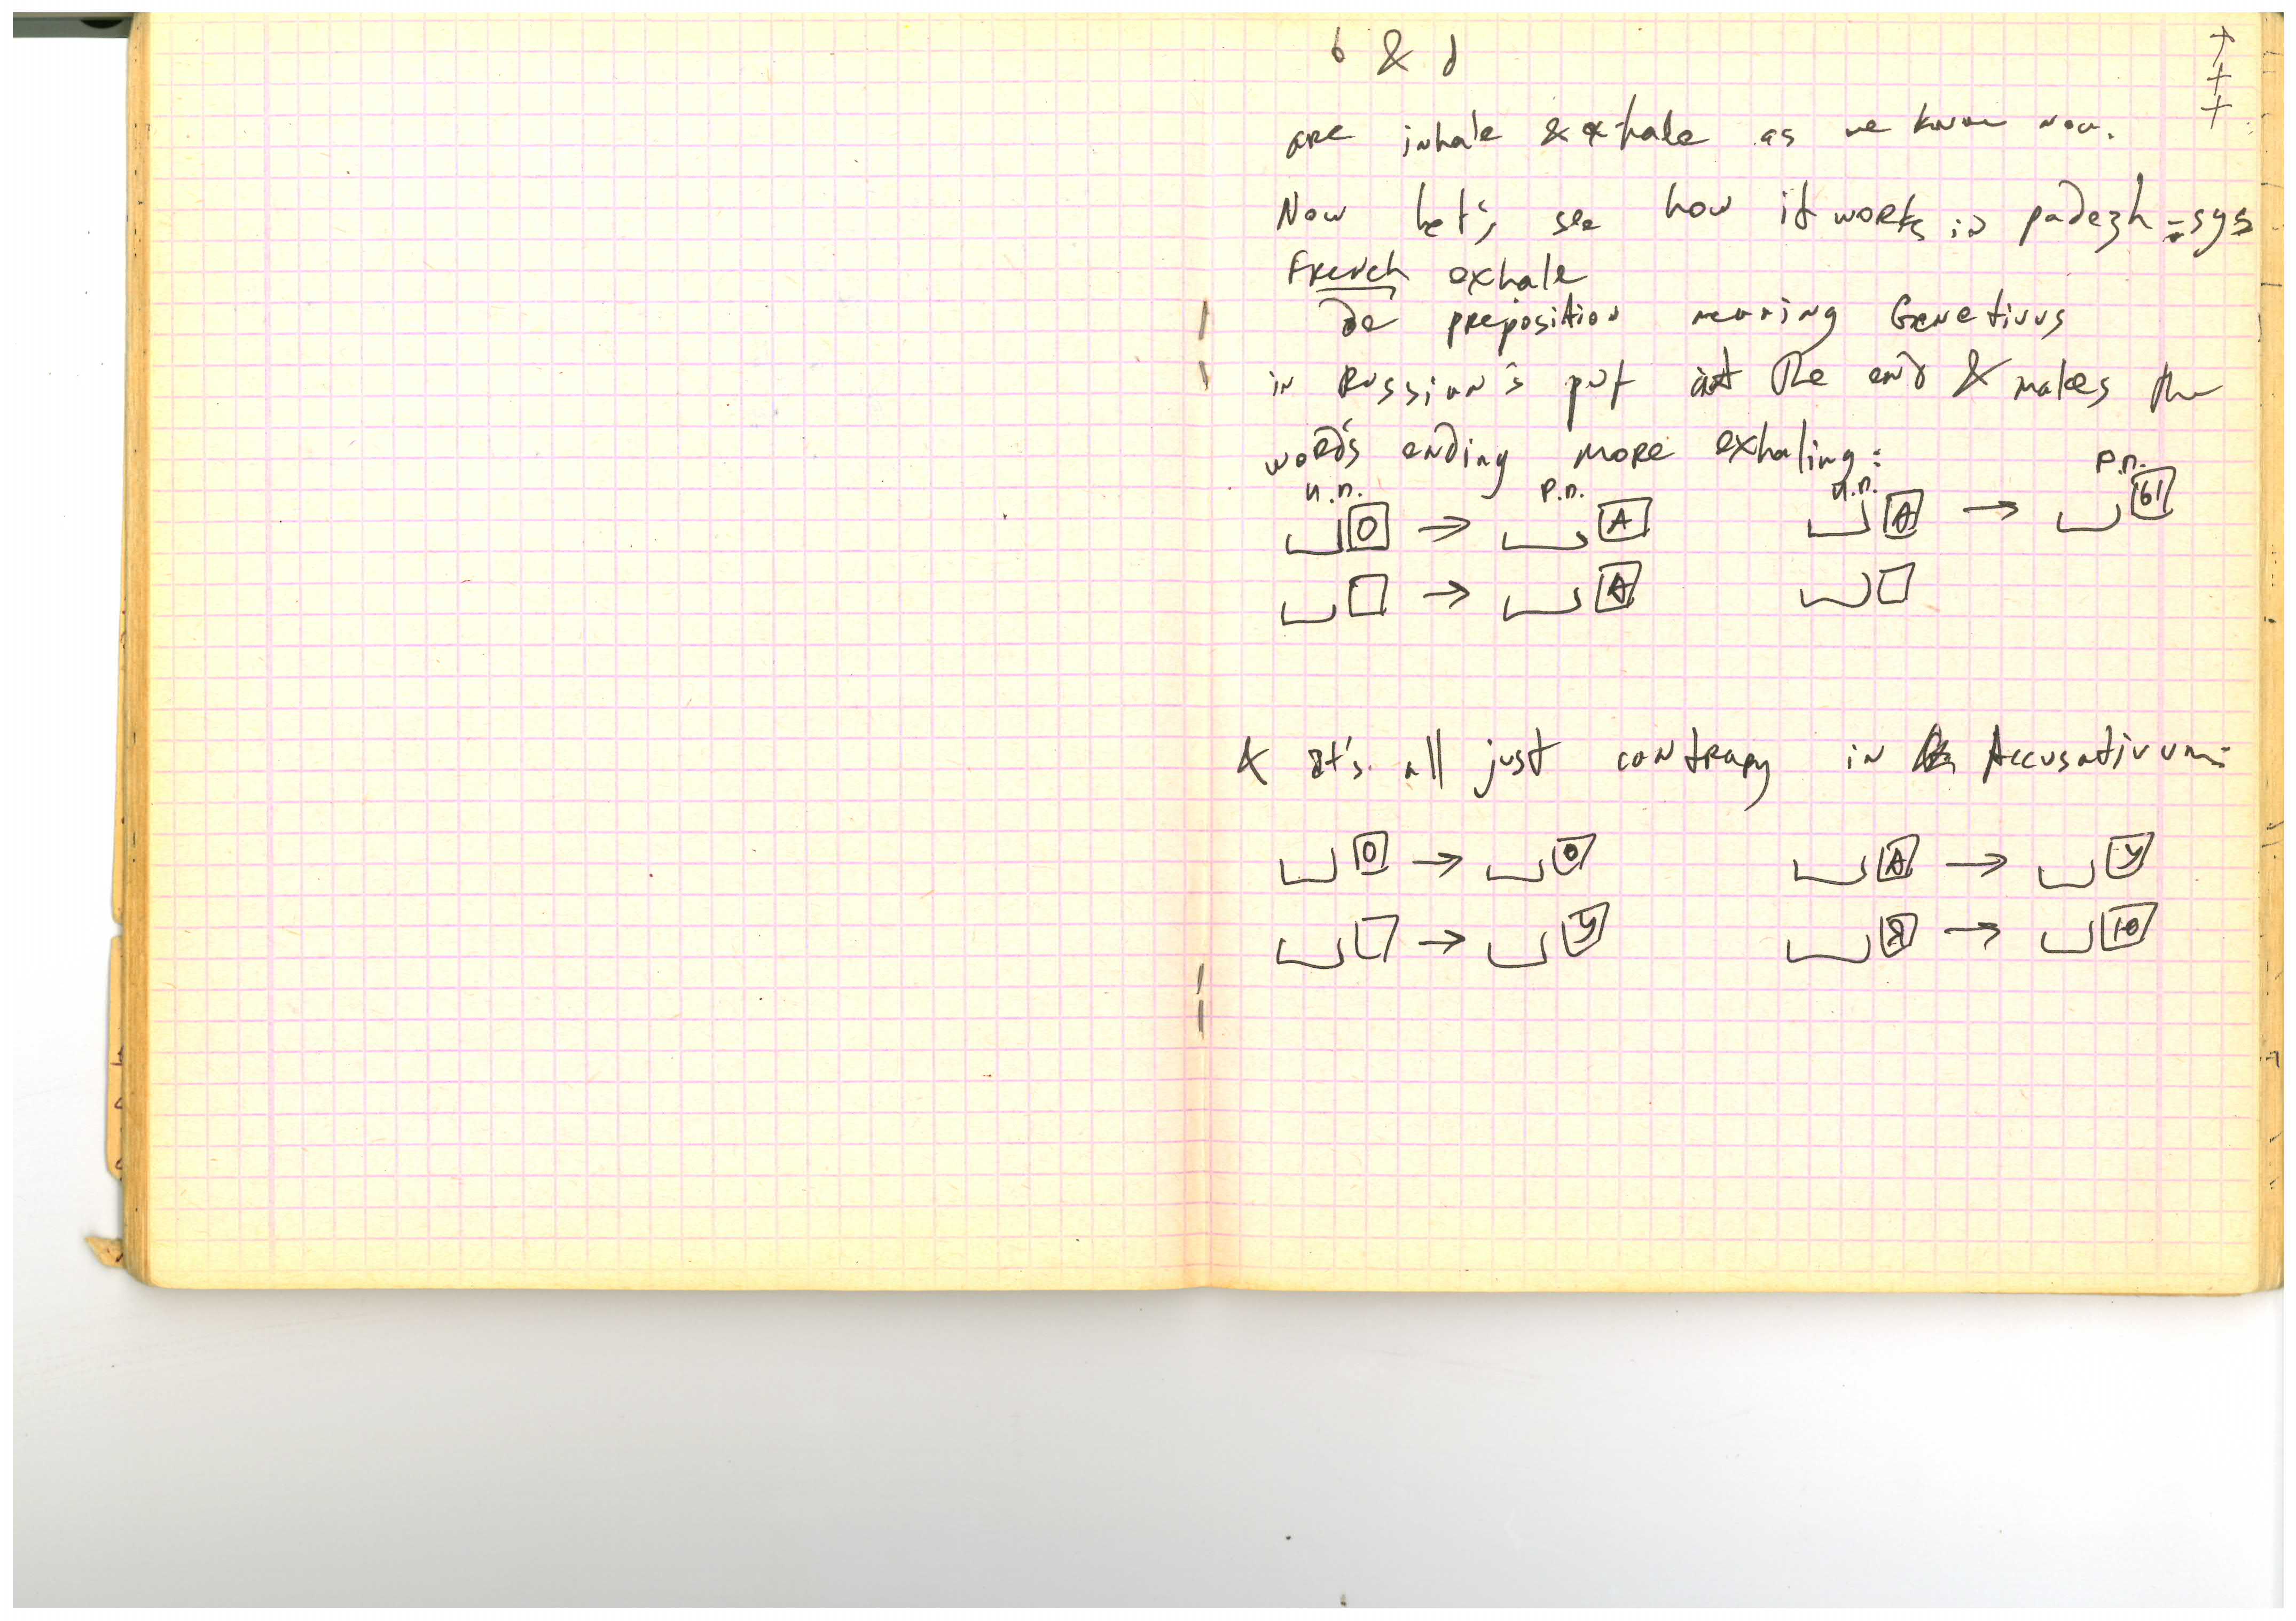 б & д
are inhale & exhale as we know now.
Now let's see how it works in padezh=sys
French exhale
de preposition meaning Genetivus
in Russian's put at the end & makes the
word's ending more exhaling:
и.п. р.п. и.п. р.п.
О → А А → Ы
→ А
& it's all just contrary in Accusativum:
О → О А → У
→ У Я → Ю